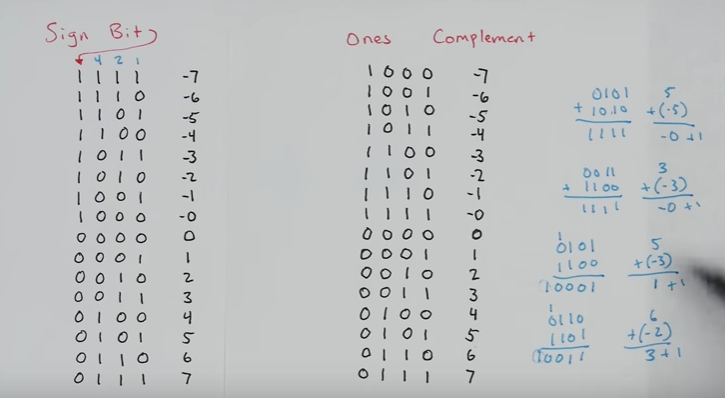 Sign Bit
4 2 1
1 1 1 1 -7
1 1 1 0 -6
1 1 0 1 -5
1 1 0 0 -4
1 0 1 1 -3
1 0 1 0 -2
1 0 0 1 -1
1 0 0 0 -0
0 0 0 0 0
0 0 0 1 1
0 0 1 0 2
0 0 1 1 3
0 1 0 0 4
0 1 0 1 5
0 1 1 0 6
0 1 1 1 7
Ones Complement
1 0 0 0 -7
1 0 0 1 -6
1 0 1 0 -5
1 0 1 1 -4
1 1 0 0 -3
1 1 0 1 -2
1 1 1 0 -1
1 1 1 1 -0
0 0 0 0 0
0 0 0 1 1
0 0 1 0 2
0 0 1 1 3
0 1 0 0 4
0 1 0 1 5
0 1 1 0 6
0 1 1 1 7
0101 5
+ 1010 +(-5)
1111 -0 +1
0011 3
+ 1100 +(-3)
1111 -0 +1
1
0101 5
1100 +(-3)
10001 1 +1
1
0110 6
1101 +(-2)
10011 3 +1